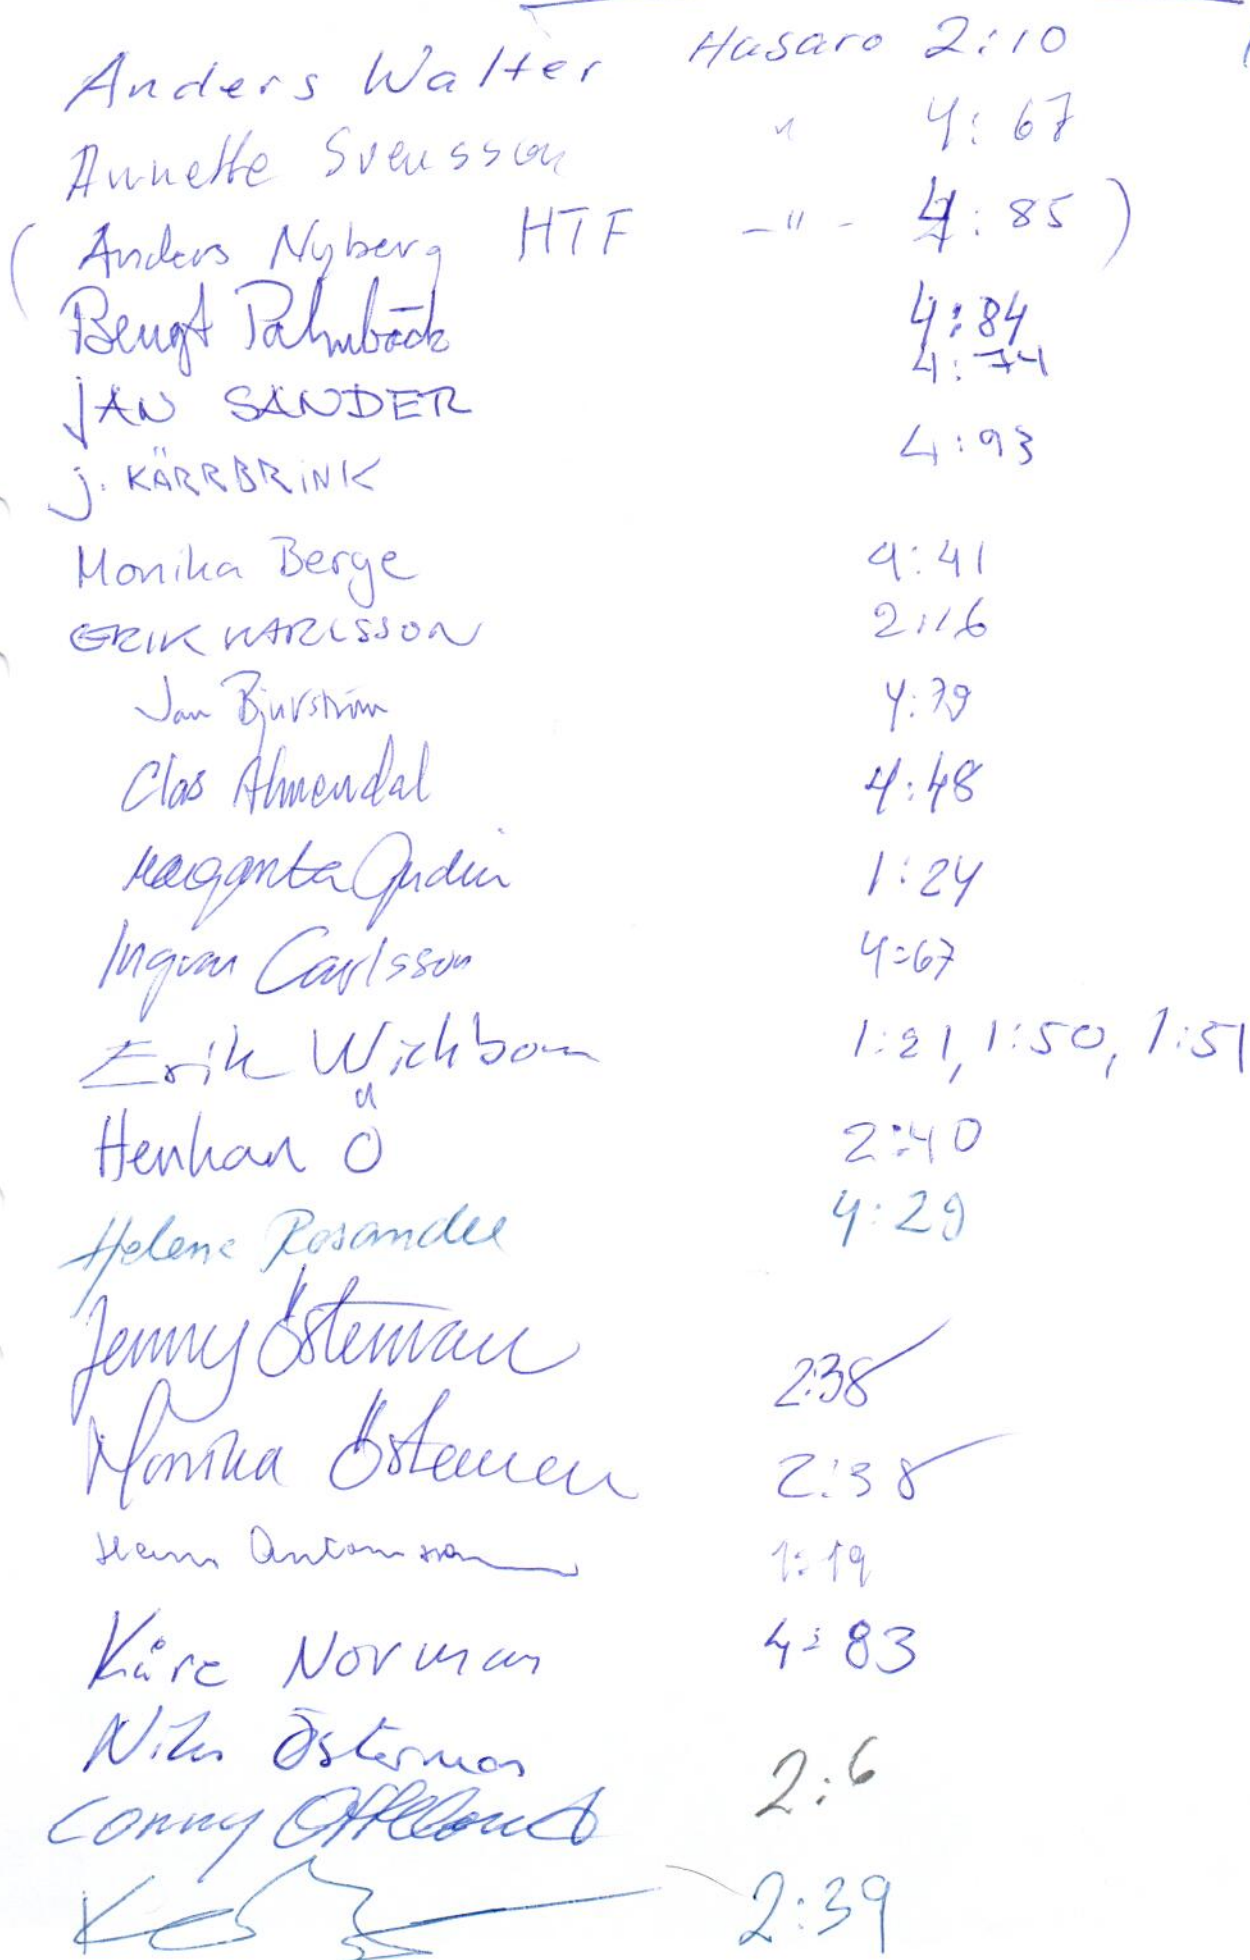 Anders Walter Hasarö 2:10
Annette Svensson " 4:67
(Anders Nyberg HTF -"- 4:85)
Bengt Palmbäck 4:84
JAN SANDER 4:74
J. KÄRRBRINK 4:93
Monika Berge 4:41
ERIK KARLSSON 2:16
Jan Bjurström 4:79
Clas Ahmendal 4:48
1:24
Ingvar Carlsson 4:67
Erik Wickbom 1:21, 1:50, 1:51
Henkan Ö 2:40
Helene Rosander 4:29
Jenny Österman 2:38
Monika Österman 2:38
Antonsson 1:19
Kåre Norman 4:83
Nils Österman 2:6
Conny
2:39